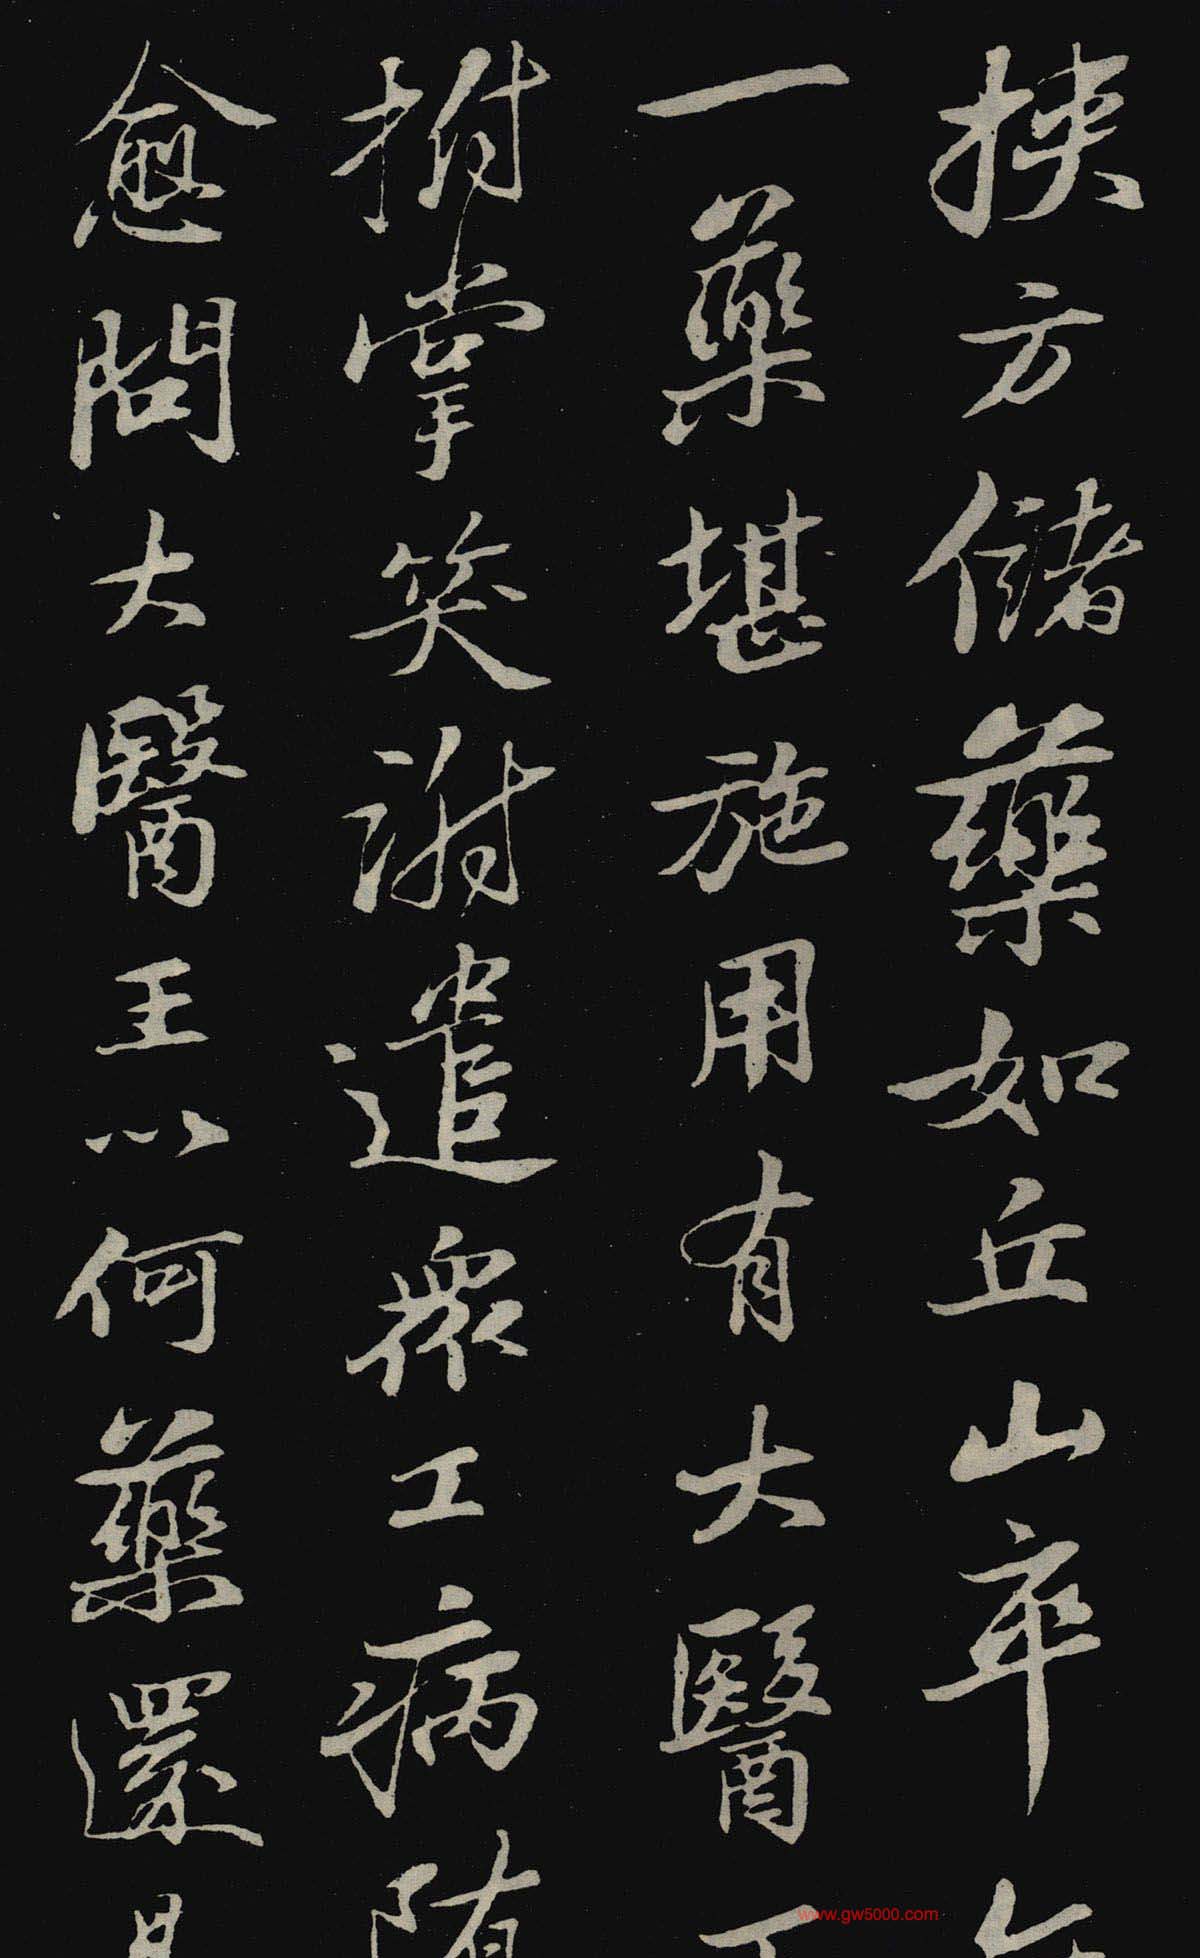 挟方儲藥如丘山卒無
一藥堪施用有大醫王
拊掌笑謝遣衆工病随
愈問大醫王以何藥還是
www.gw5000.com